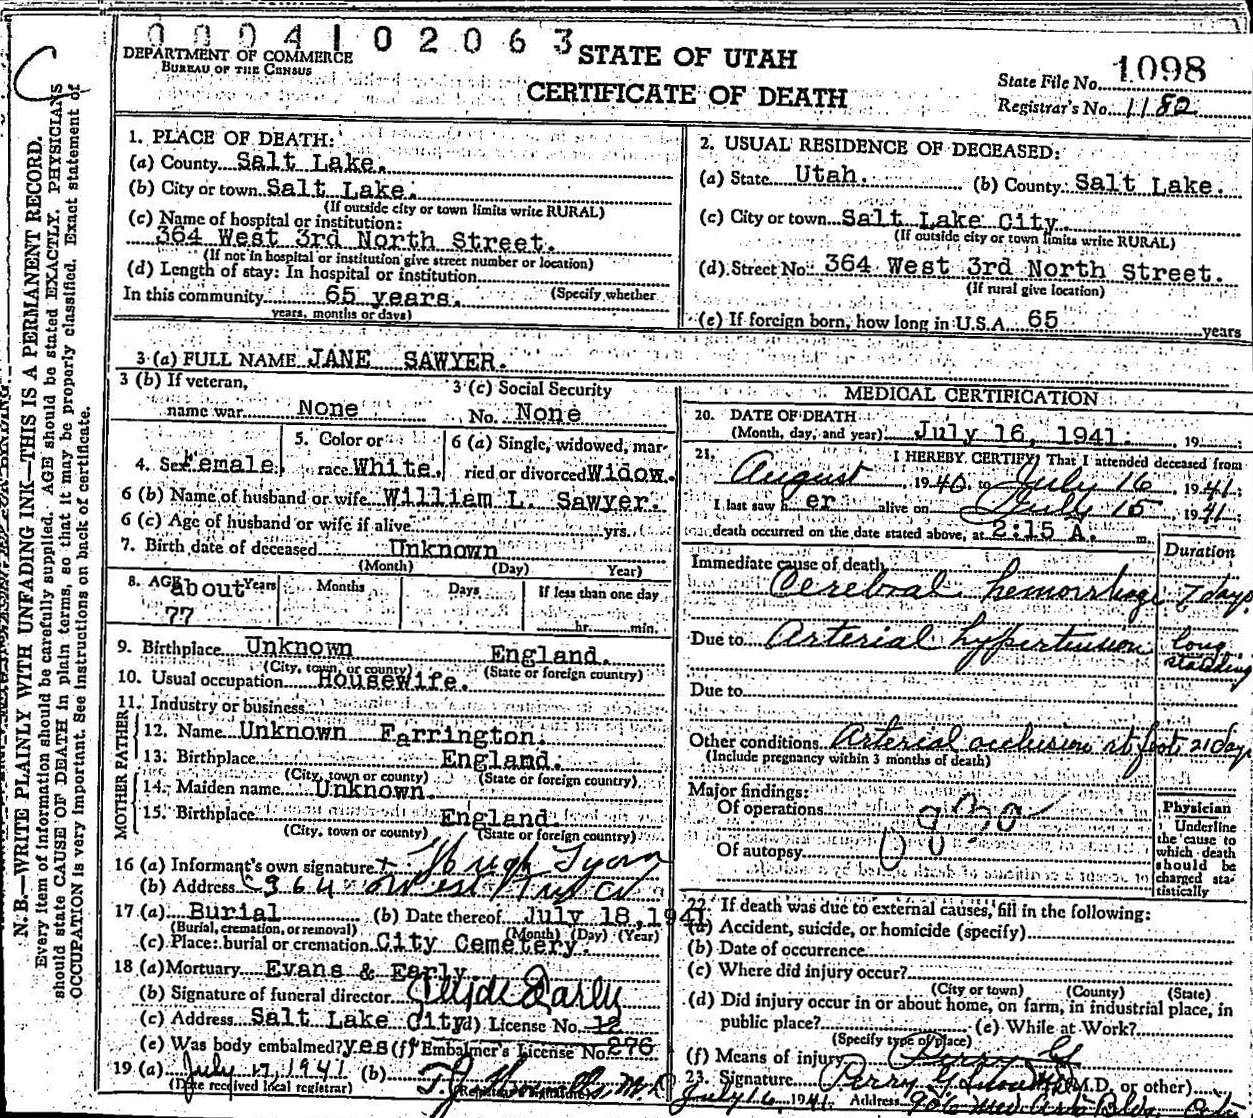 C
0 0 0 4 1 0 2 0 6 3
DEPARTMENT OF COMMERCE
BUREAU OF THE CENSUS
STATE OF UTAH
CERTIFICATE OF DEATH
State File No. 1098
Registrar's No. 1182
N. B.—WRITE PLAINLY WITH UNFADING INK—THIS IS A PERMANENT RECORD.
Every item of information should be carefully supplied. AGE should be stated EXACTLY. PHYSICIANS
should state CAUSE OF DEATH in plain terms, so that it may be properly classified. Exact statement of
OCCUPATION is very important. See instructions on back of certificate.
1. PLACE OF DEATH:
(a) County Salt Lake.
(b) City or town Salt Lake.
(If outside city or town limits write RURAL)
(c) Name of hospital or institution:
364 West 3rd North Street.
(If not in hospital or institution give street number or location)
(d) Length of stay: In hospital or institution
In this community 65 years. (Specify whether
years, months or days)
2. USUAL RESIDENCE OF DECEASED:
(a) State Utah. (b) County Salt Lake.
(c) City or town Salt Lake City.
(If outside city or town limits write RURAL)
(d) Street No. 364 West 3rd North Street.
(If rural give location)
(e) If foreign born, how long in U.S.A. 65 years
3 (a) FULL NAME JANE SAWYER.
3 (b) If veteran,
name war None
3 (c) Social Security
No. None
4. Sex Female.
5. Color or
race White.
6 (a) Single, widowed, mar-
ried or divorced Widow.
6 (b) Name of husband or wife William L. Sawyer.
6 (c) Age of husband or wife if alive yrs.
7. Birth date of deceased Unknown
(Month) (Day) Year)
8. AGE about Years Months Days If less than one day
77 hr. min.
9. Birthplace Unknown England.
(City, town, or county) (State or foreign country)
10. Usual occupation Housewife.
11. Industry or business
FATHER
12. Name Unknown Farrington.
13. Birthplace England.
(City, town or county) (State or foreign country)
MOTHER
14. Maiden name Unknown.
15. Birthplace England.
(City, town or county) (State or foreign country)
16 (a) Informant's own signature Hugh
(b) Address 364 West
17 (a) Burial (b) Date thereof July 18, 1941
(Burial, cremation, or removal) (Month) (Day) (Year)
(c) Place: burial or cremation City Cemetery.
18 (a) Mortuary Evans & Early
(b) Signature of funeral director Clyde Early
(c) Address Salt Lake City (d) License No. 12
(e) Was body embalmed? yes (f) Embalmer's License No. 276
19 (a) July 17, 1941 (b) T. J. Howells M.D.
(Date received local registrar) (Registrar's signature)
MEDICAL CERTIFICATION
20. DATE OF DEATH
(Month, day, and year) July 16, 1941. 19
21. I HEREBY CERTIFY, That I attended deceased from
August 1940. to July 16 1941.
I last saw h er alive on July 15 1941.
death occurred on the date stated above, at 2:15 A. m.
Duration
Immediate cause of death
Cerebral hemorrhage 7 days
Due to Arterial hypertension long
standing
Due to
Other conditions Arterial occlusion rt foot 21 days
(Include pregnancy within 3 months of death)
Major findings:
Of operations
Of autopsy
Physician
Underline
the cause to
which death
should be
charged sta-
tistically
22. If death was due to external causes, fill in the following:
(a) Accident, suicide, or homicide (specify)
(b) Date of occurrence
(c) Where did injury occur?
(City or town) (County) (State)
(d) Did injury occur in or about home, on farm, in industrial place, in
public place? (e) While at Work?
(Specify type of place)
(f) Means of injury Perry G
23. Signature Perry G. (M.D. or other)
July 16, 1941. Address 906 Med Arts Bldg